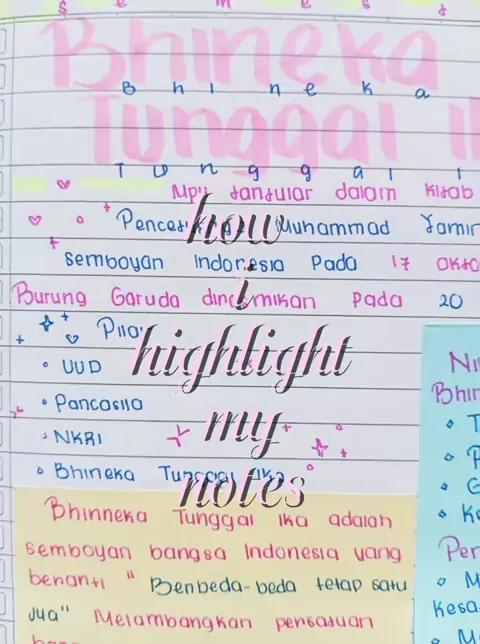 s e m e s t
Bhineka
B h i n e k a
Tunggal I
T u n g g a l I
Mpu tantular dalam kitab
Muhammad Yamin
semboyan Indonesia Pada 17 Okto
Burung Garuda diresmikan Pada 20
Pilar
• UUD
• Pancasila
• NKRI
• Bhineka Tunggal Ika
how
i
highlight
my
notes
Bhinneka Tunggal Ika adalah
semboyan bangsa Indonesia yang
berarti " Berbeda-beda tetap satu
Jua" Melambangkan persatuan
Bhin
Per
Kesa